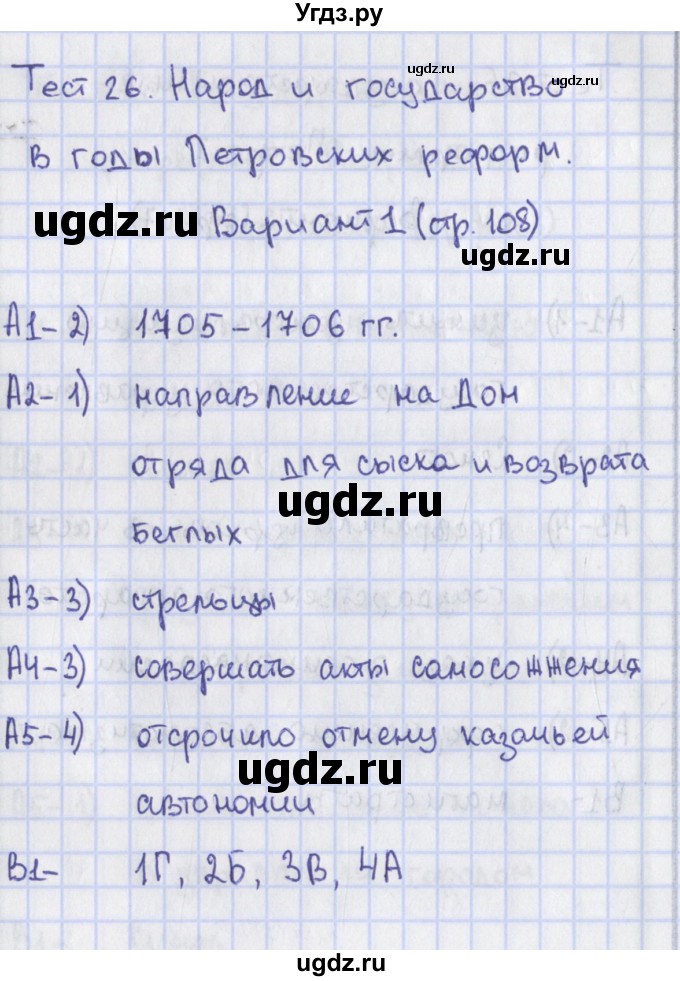 Угдз.ру
ugdz.ru ugdz.ru
Тест 26. Народ и государство
в годы Петровских реформ.
ugdz.ru Вариант 1 (стр. 108)
ugdz.ru
А1-2) 1705-1706 гг.
А2-1) направление на Дон
отряда для сыска и возврата
ugdz.ru
беглых
А3-3) стрельцы
А4-3) совершать акты самосожжения
А5-4) отсрочило отмену казачьей
ugdz.ru
автономии
В1- 1Г, 2Б, 3В, 4А
ugdz.ru